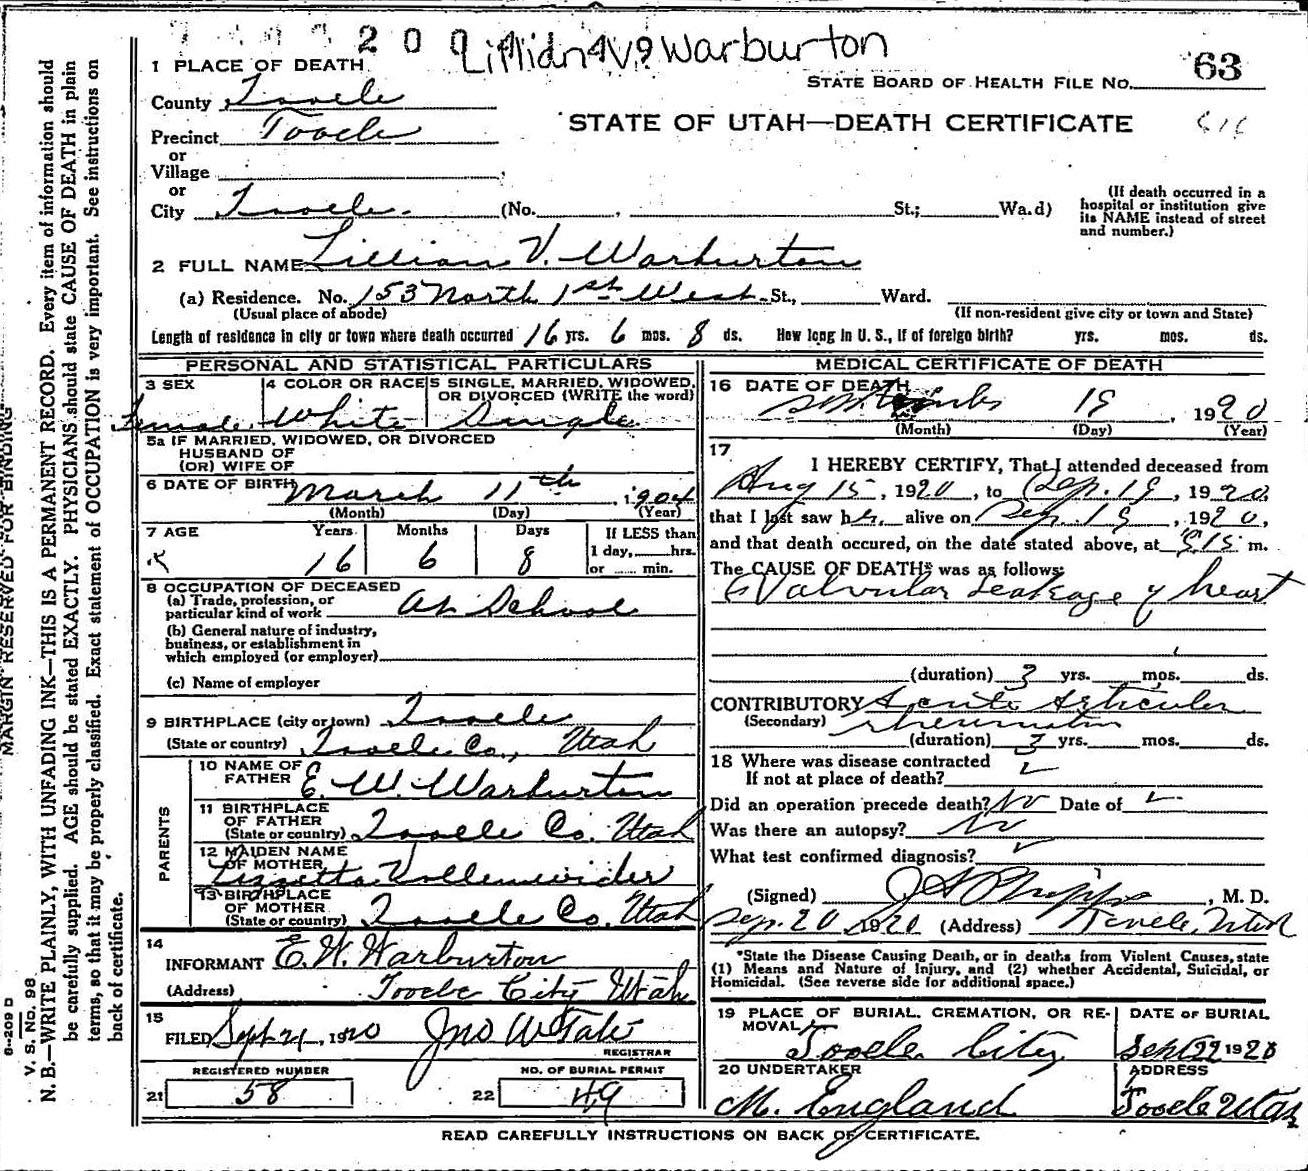 2 0 9 Lillian V. Warburton
1 PLACE OF DEATH
STATE BOARD OF HEALTH FILE No. 63
County Tooele
STATE OF UTAH—DEATH CERTIFICATE
Precinct Tooele
or
Village
or
City Tooele. (No. , St.; Wa.d)
(If death occurred in a
hospital or institution give
its NAME instead of street
and number.)
2 FULL NAME Lillian V. Warburton
(a) Residence. No. 153 North 1st West St., Ward.
(Usual place of abode) (If non-resident give city or town and State)
Length of residence in city or town where death occurred 16 yrs. 6 mos. 8 ds. How long in U. S., if of foreign birth? yrs. mos. ds.
PERSONAL AND STATISTICAL PARTICULARS
3 SEX 4 COLOR OR RACE 5 SINGLE, MARRIED, WIDOWED,
OR DIVORCED (WRITE the word)
Female White Single
5a IF MARRIED, WIDOWED, OR DIVORCED
HUSBAND OF
(OR) WIFE OF
6 DATE OF BIRTH March 11th, 1904
(Month) (Day) (Year)
7 AGE Years Months Days If LESS than
1 day, hrs.
or min.
16 6 8
8 OCCUPATION OF DECEASED
(a) Trade, profession, or
particular kind of work At School
(b) General nature of industry,
business, or establishment in
which employed (or employer)
(c) Name of employer
9 BIRTHPLACE (city or town) Tooele
(State or country) Tooele Co., Utah
PARENTS
10 NAME OF
FATHER E. W. Warburton
11 BIRTHPLACE
OF FATHER
(State or country) Tooele Co. Utah
12 MAIDEN NAME
OF MOTHER
Lizzetta Vollenwider
13 BIRTHPLACE
OF MOTHER
(State or country) Tooele Co. Utah
14
INFORMANT E. W. Warburton
(Address) Tooele City Utah
15
FILED Sept 21, 1920 Jno W Tate
REGISTRAR
REGISTERED NUMBER NO. OF BURIAL PERMIT
21 58 22 49
MEDICAL CERTIFICATE OF DEATH
16 DATE OF DEATH
September 19, 1920
(Month) (Day) (Year)
17
I HEREBY CERTIFY, That I attended deceased from
Aug 15, 1920, to Sep. 19, 1920,
that I last saw her alive on Sep. 19, 1920,
and that death occured, on the date stated above, at 915 m.
The CAUSE OF DEATH* was as follows:
Valvular Leakage of heart
(duration) 3 yrs. mos. ds.
CONTRIBUTORY Acute Articular
(Secondary) rheumatism
(duration) 3 yrs. mos. ds.
18 Where was disease contracted
If not at place of death?
Did an operation precede death? No Date of
Was there an autopsy? No
What test confirmed diagnosis?
(Signed) J A Phipps, M. D.
Sep. 20 1920 (Address) Tooele, Utah
*State the Disease Causing Death, or in deaths from Violent Causes, state
(1) Means and Nature of Injury, and (2) whether Accidental, Suicidal, or
Homicidal. (See reverse side for additional space.)
19 PLACE OF BURIAL, CREMATION, OR RE-
MOVAL
DATE OF BURIAL
Tooele City Sept 22 1920
20 UNDERTAKER ADDRESS
M. England Tooele Utah
READ CAREFULLY INSTRUCTIONS ON BACK OF CERTIFICATE.
MARGIN RESERVED FOR BINDING
V. S. No. 98
N. B.—WRITE PLAINLY, WITH UNFADING INK—THIS IS A PERMANENT RECORD. Every item of information should
be carefully supplied. AGE should be stated EXACTLY. PHYSICIANS should state CAUSE OF DEATH in plain
terms, so that it may be properly classified. Exact statement of OCCUPATION is very important. See instructions on
back of certificate.